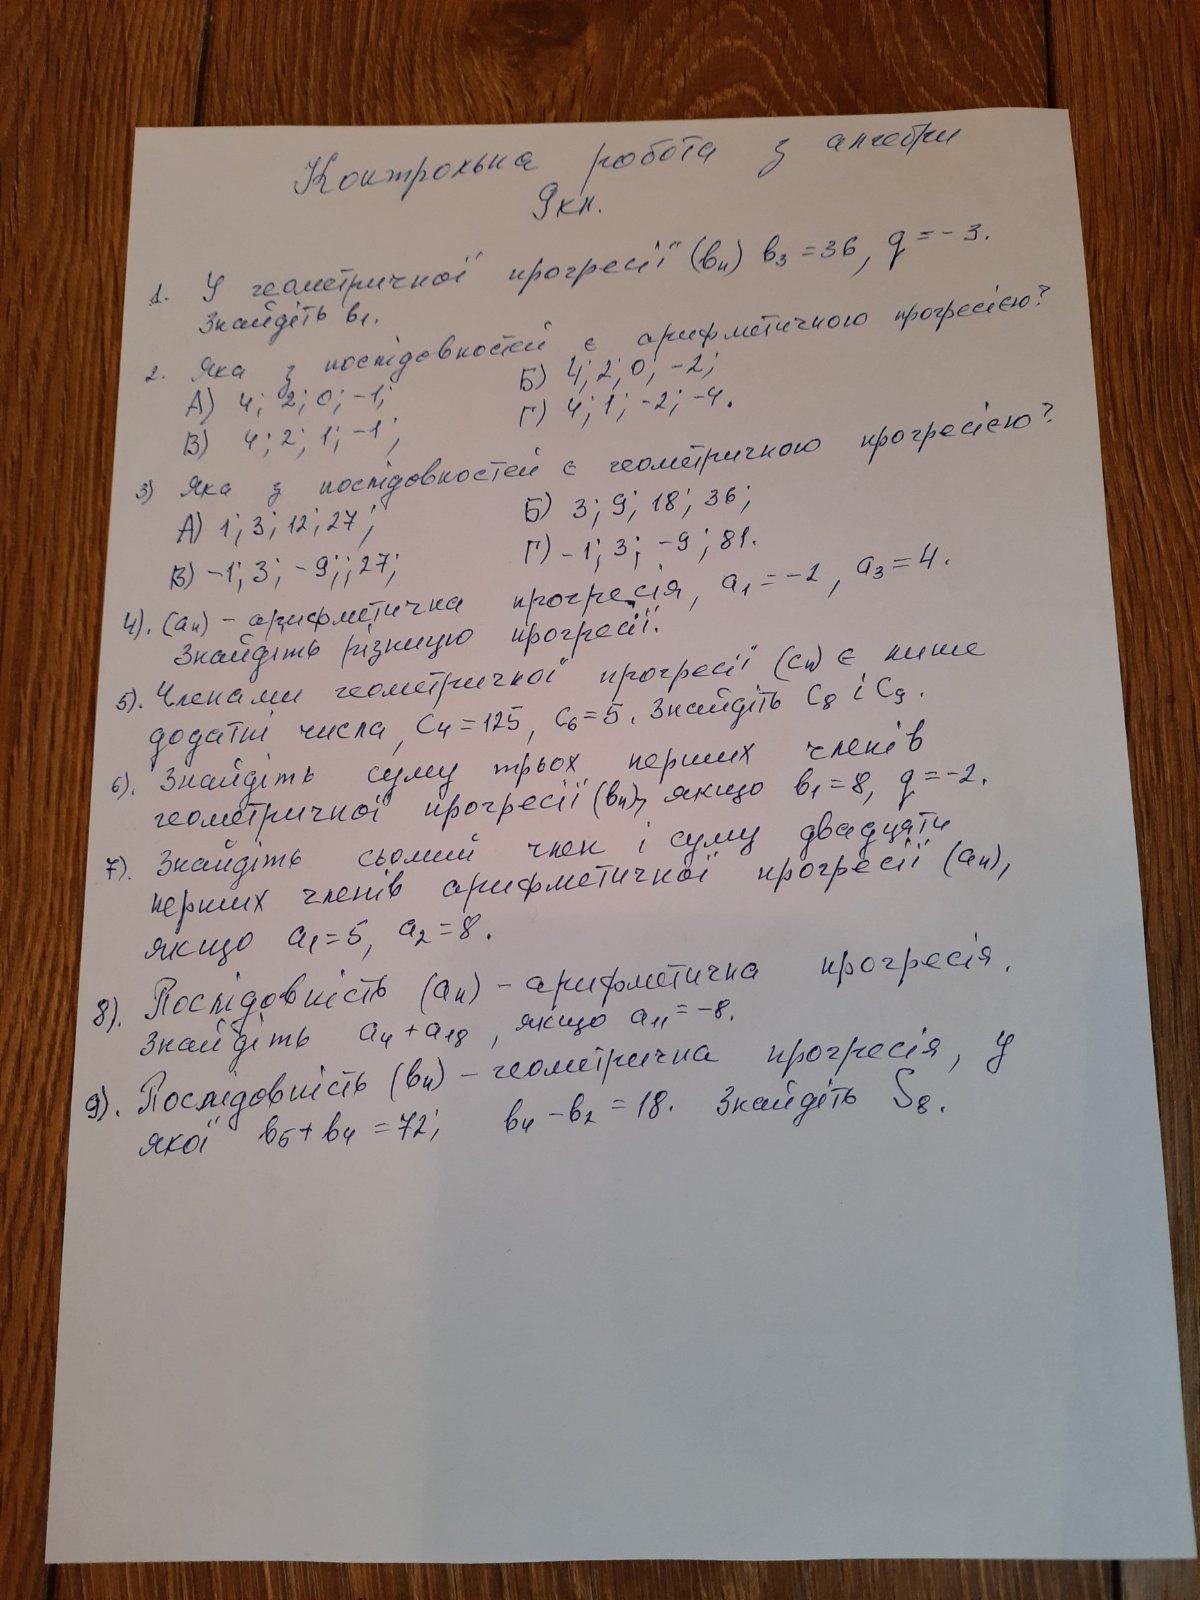 Контрольна робота з алгебри
9 кл.
1. У геометричної прогресії (bn) b3 = 36, q = -3.
Знайдіть b1.
2. Яка з послідовностей є арифметичною прогресією?
А) 4; 2; 0; -1; Б) 4; 2; 0; -2;
В) 4; 2; 1; -1; Г) 4; 1; -2; -4.
3) Яка з послідовностей є геометричною прогресією?
А) 1; 3; 12; 27; Б) 3; 9; 18; 36;
В) -1; 3; -9;; 27; Г) -1; 3; -9; 81.
4). (an) - арифметична прогресія, a1 = -2, a3 = 4.
Знайдіть різницю прогресії.
5). Членами геометричної прогресії (cn) є лише
додатні числа, c4 = 125, c6 = 5. Знайдіть c8 і c9.
6). Знайдіть суму трьох перших членів
геометричної прогресії (bn), якщо b1 = 8, q = -2.
7). Знайдіть сьомий член і суму двадцяти
перших членів арифметичної прогресії (an),
якщо a1 = 5, a2 = 8.
8). Послідовність (an) - арифметична прогресія.
Знайдіть a4 + a18, якщо a11 = -8.
9). Послідовність (bn) - геометрична прогресія, у
якої b5 + b4 = 72; b4 - b2 = 18. Знайдіть S8.